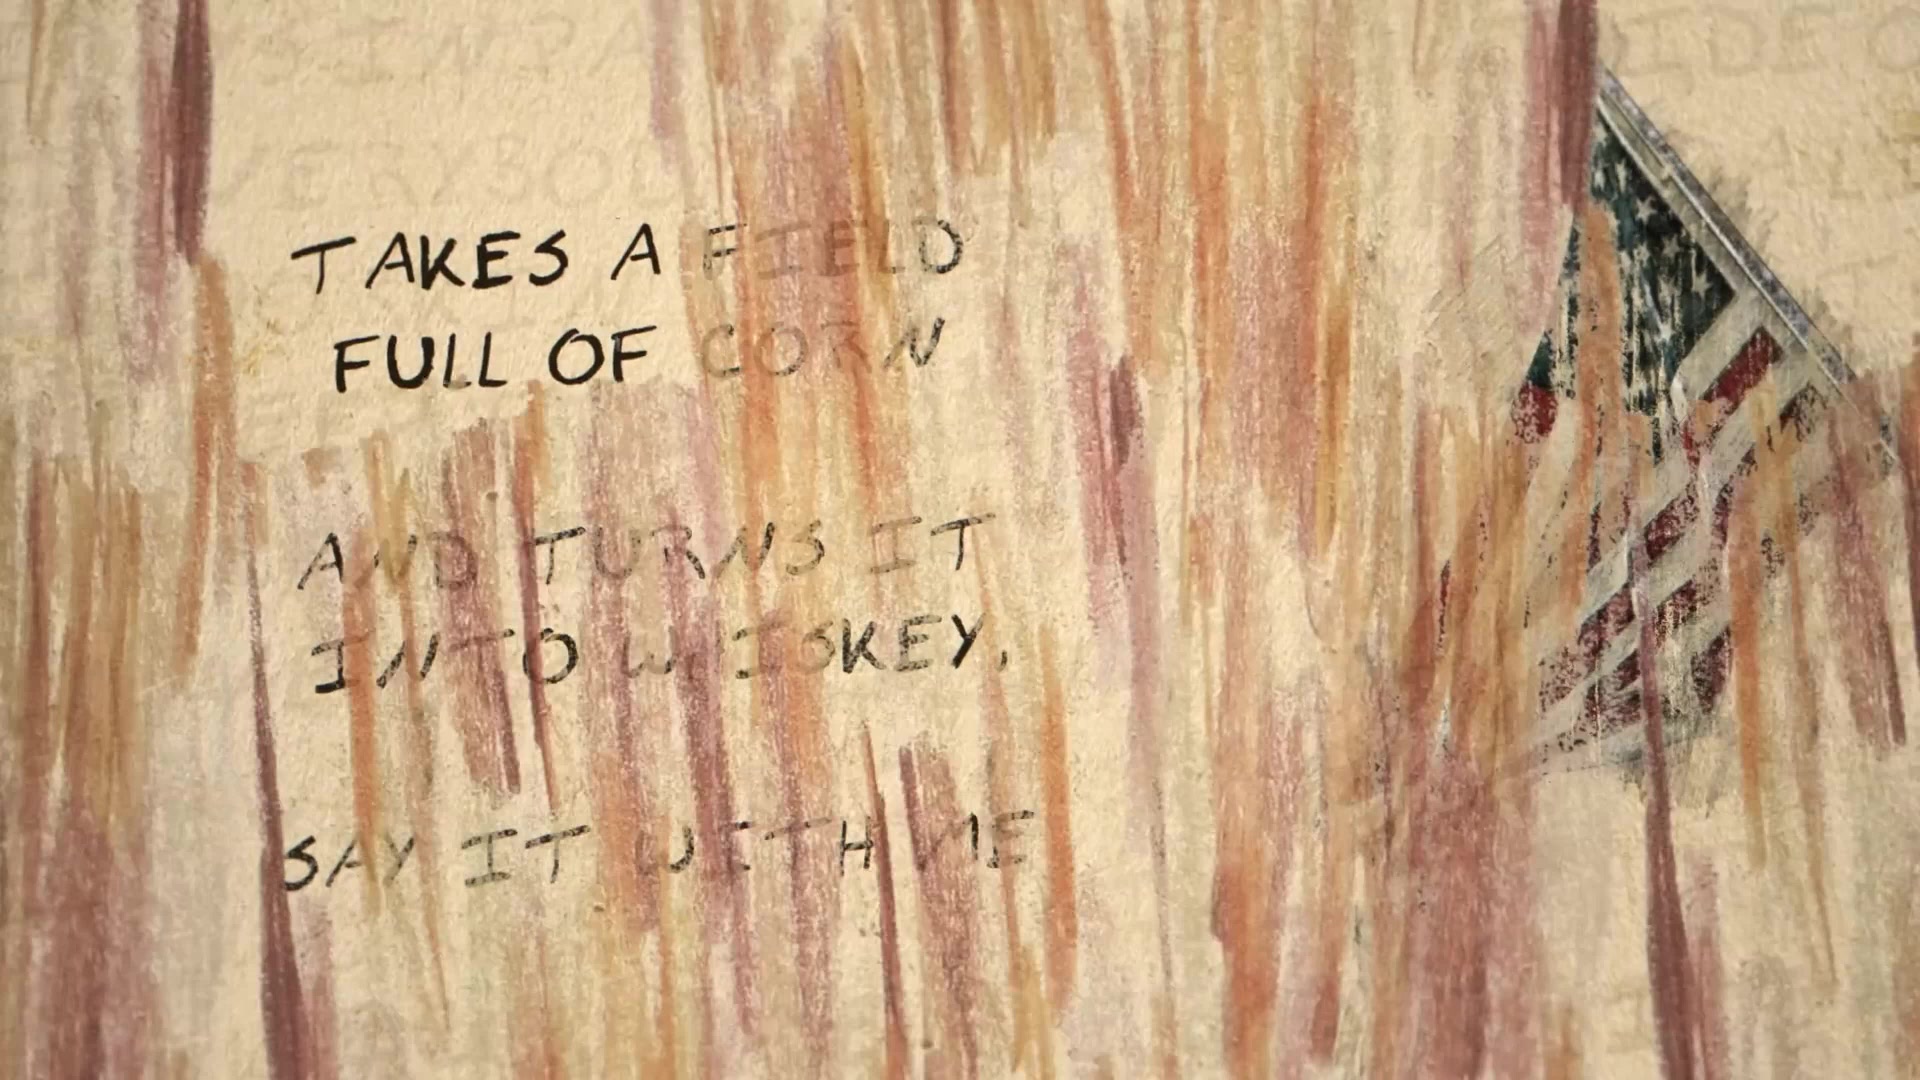 TAKES A FIELD
FULL OF CORN
AND TURNS IT
INTO WHISKEY,
SAY IT WITH ME